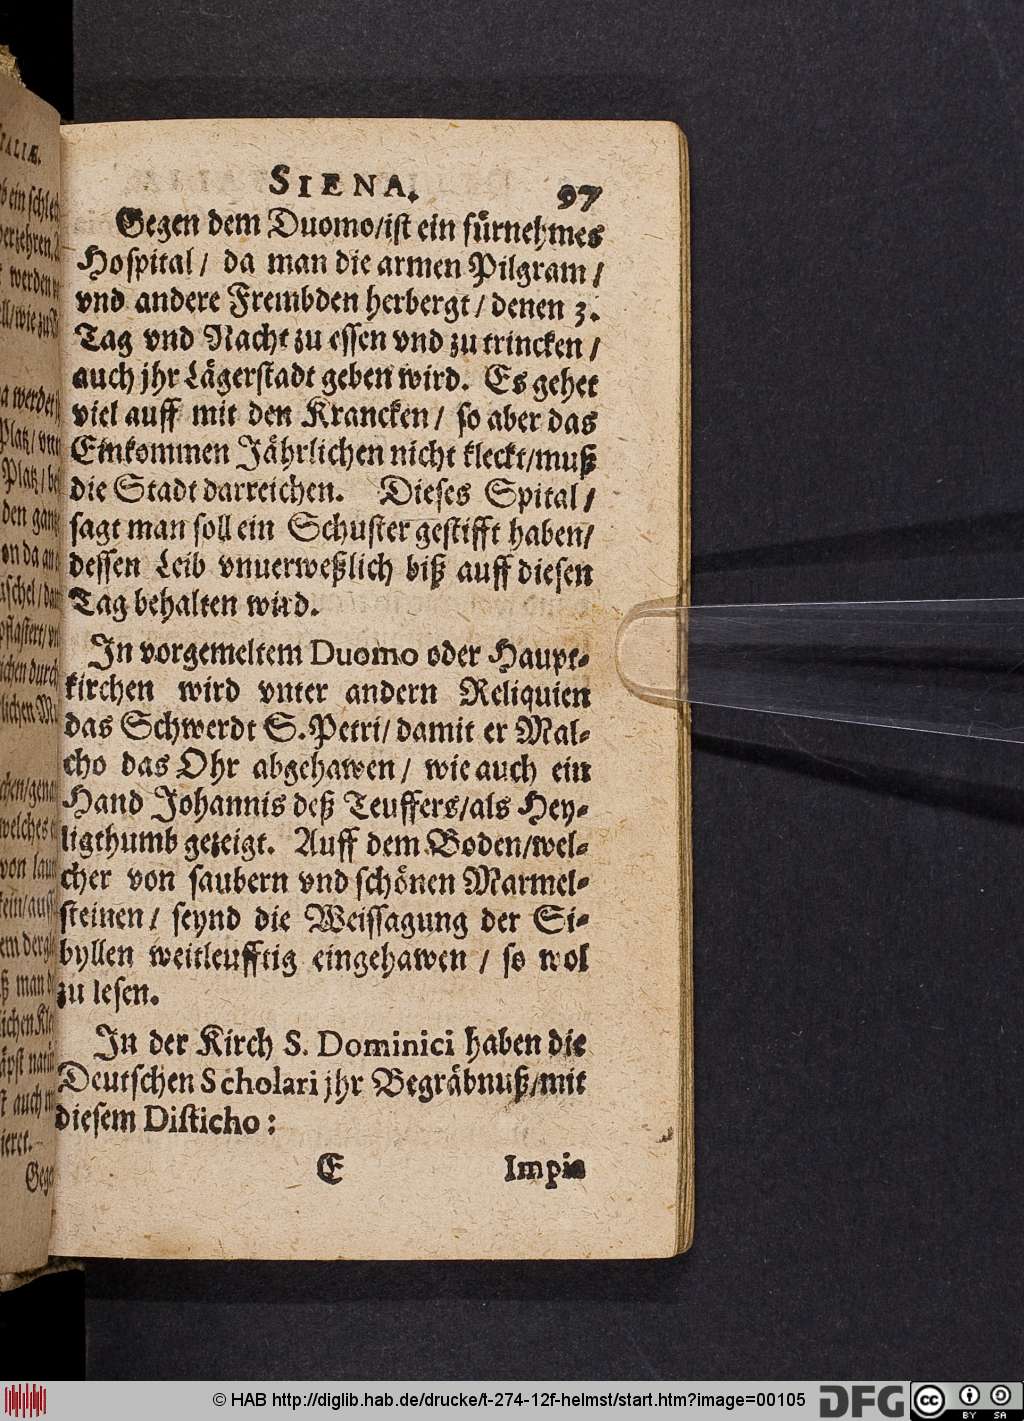 SIENA. 97
Gegen dem Duomo/ist ein fürnehmes
Hospital/ da man die armen Pilgram/
vnd andere Frembden herbergt/ denen 3.
Tag vnd Nacht zu essen vnd zu trincken/
auch jhr Lägerstadt geben wird. Es gehet
viel auff mit den Krancken/ so aber das
Einkommen Jährlichen nicht kleckt/muß
die Stadt darreichen. Dieses Spital/
sagt man soll ein Schuster gestifft haben/
dessen Leib vnuerweßlich biß auff diesen
Tag behalten wird.
In vorgemeltem Duomo oder Haupt-
kirchen wird vnter andern Reliquien
das Schwerdt S. Petri/ damit er Mal-
cho das Ohr abgehawen/ wie auch ein
Hand Johannis deß Teuffers/als Hey-
ligthumb gezeigt. Auff dem Boden/wel-
cher von saubern vnd schönen Marmel-
steinen/ seynd die Weissagung der Si-
byllen weitleufftig eingehawen/ so wol
zu lesen.
In der Kirch S. Dominici haben die
Deutschen Scholari jhr Begräbnuß/mit
diesem Disticho:
E Impia
© HAB http://diglib.hab.de/drucke/t-274-12f-helmst/start.htm?image=00105
DFG
cc BY SA